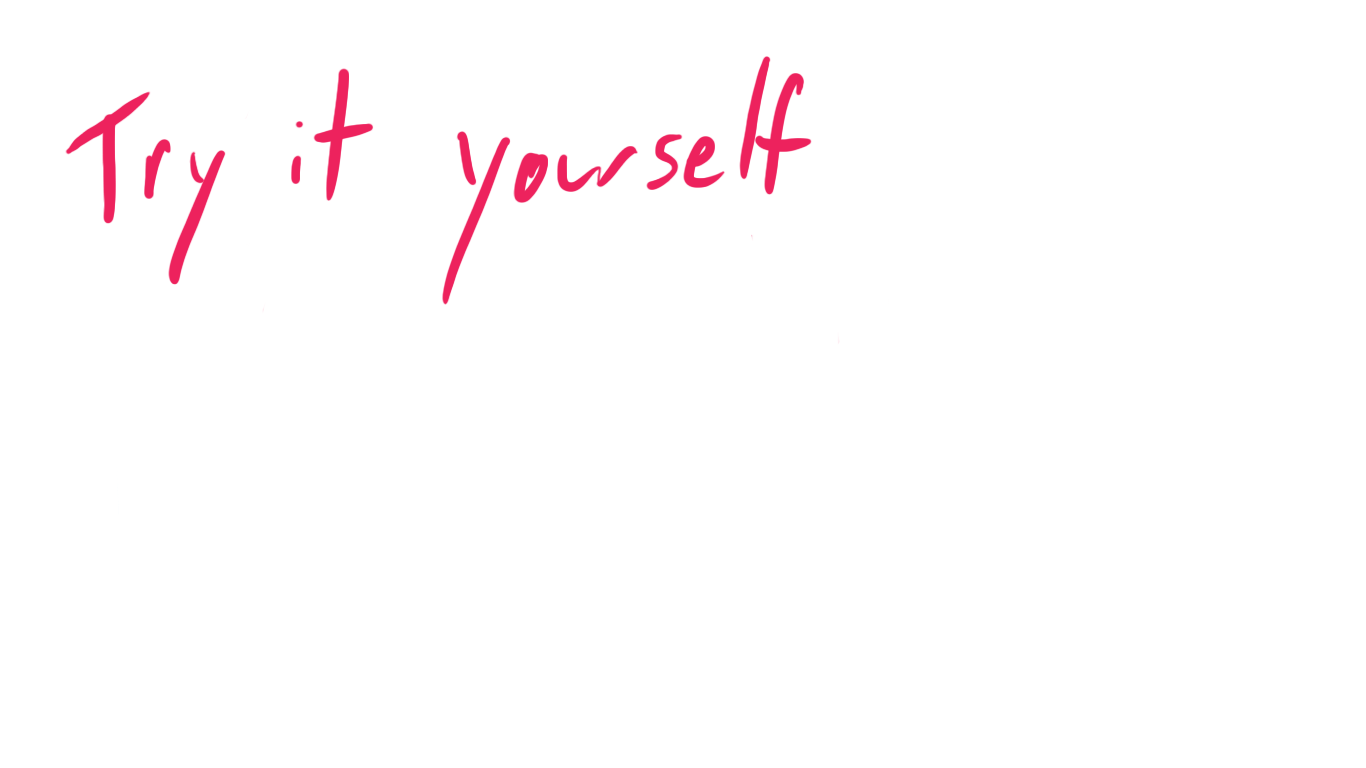 Try it yourself